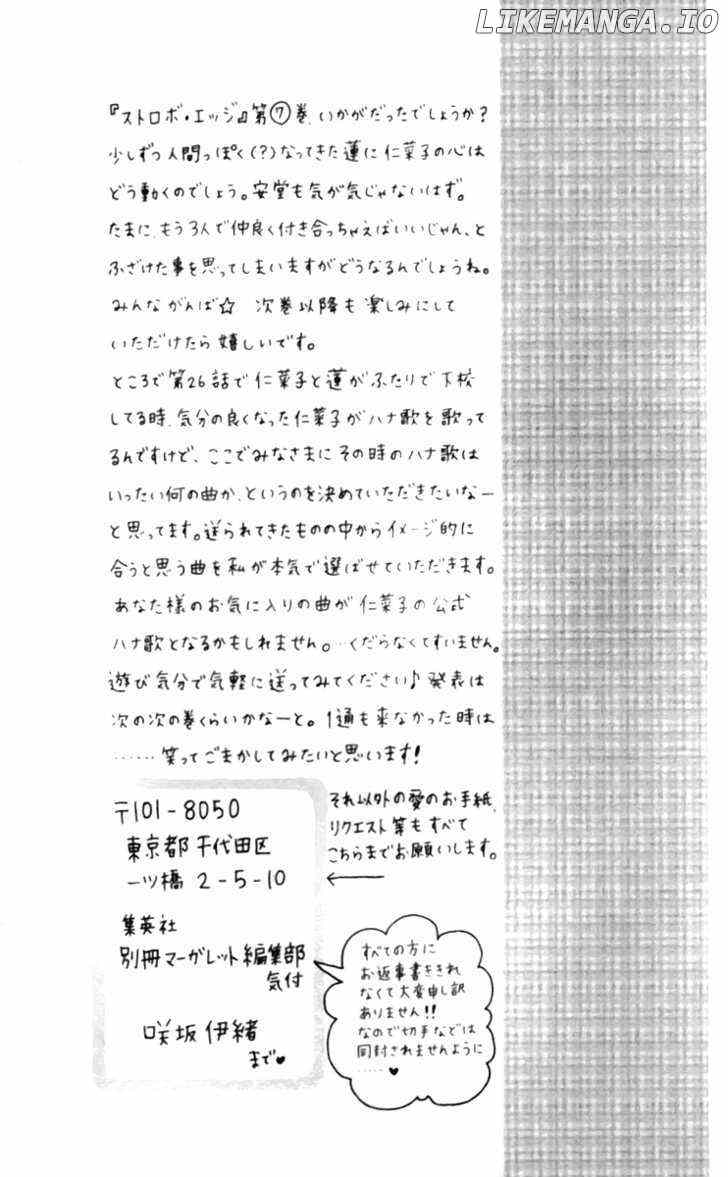 LIKEMANGA.IO
『ストロボ・エッジ』第⑦巻、いかがだったでしょうか?
少しずつ人間っぽく(?)なってきた蓮に仁菜子の心は
どう動くのでしょう。安堂も気が気じゃないはず。
たまに、もう3人で仲良く付き合っちゃえばいいじゃん、と
ふざけた事を思ってしまいますがどうなるんでしょうね。
みんながんば☆ 次巻以降も楽しみにして
いただけたら嬉しいです。
ところで第26話で仁菜子と蓮がふたりで下校
してる時、気分の良くなった仁菜子がハナ歌を歌って
るんですけど、ここでみなさまにその時のハナ歌は
いったい何の曲か、というのを決めていただきたいなー
と思ってます。送られてきたものの中からイメージ的に
合うと思う曲を私が本気で選ばせていただきます。
あなた様のお気に入りの曲が仁菜子の公式
ハナ歌となるかもしれません。…くだらなくてすいません。
遊び気分で気軽に送ってみてください♪発表は
次の次の巻くらいかなーと。1通も来なかった時は
……笑ってごまかしてみたいと思います!
〒101-8050
東京都千代田区
一ツ橋 2-5-10
集英社
別冊マーガレット編集部
気付
咲坂伊緒
まで♥
それ以外の愛のお手紙、
リクエスト等もすべて
こちらまでお願いします。
すべての方に
お返事書ききれ
なくて大変申し訳
ありません!!
なので切手などは
同封されませんように
……♥